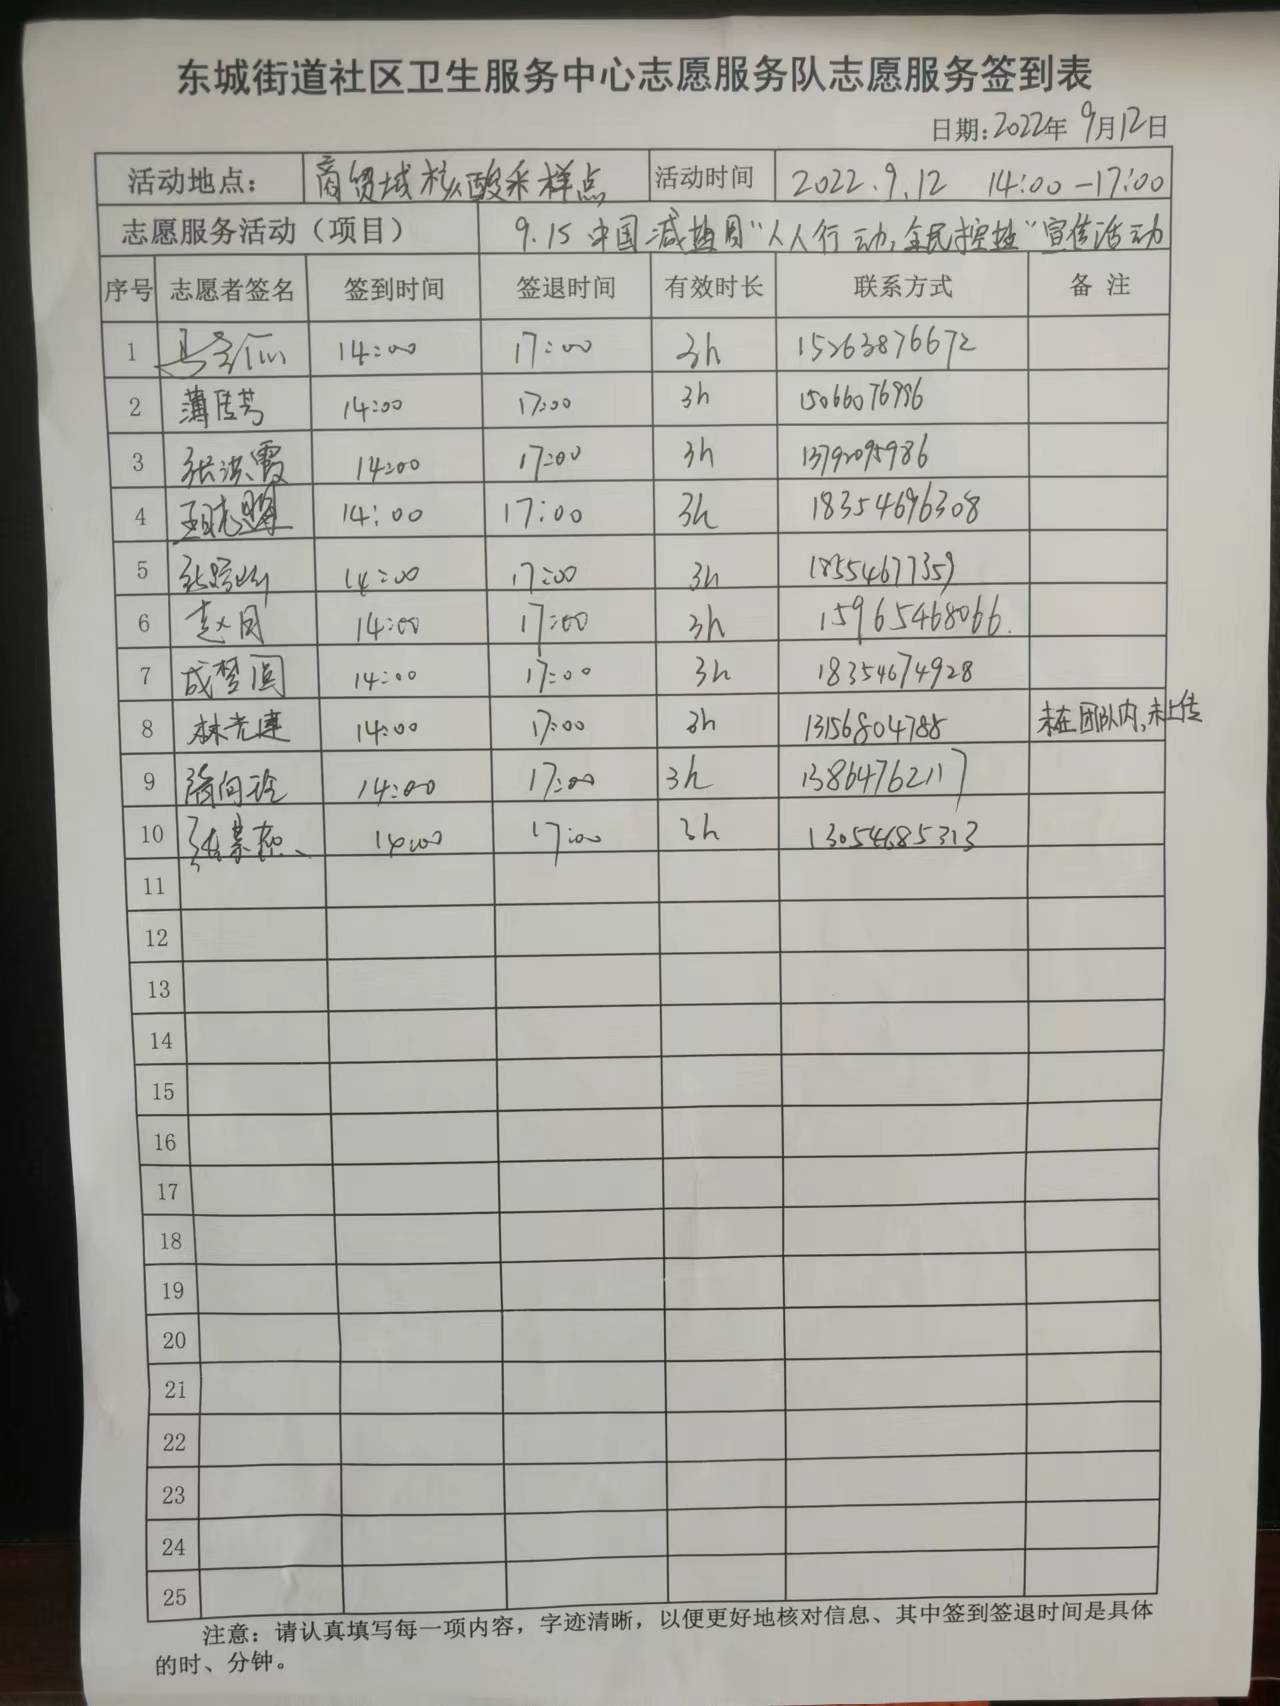 东城街道社区卫生服务中心志愿服务队志愿服务签到表
日期:2022年9月12日
活动地点： 商贸城核酸采样点 活动时间 2022.9.12 14:00-17:00
志愿服务活动（项目） 9.15中国减盐周“人人行动,全民控盐”宣传活动
序号 志愿者签名 签到时间 签退时间 有效时长 联系方式 备 注
1 14:00 17:00 3h 15263876672
2 薄传芳 14:00 17:00 3h 15066076996
3 张洪霞 14:00 17:00 3h 13792095986
4 14:00 17:00 3h 18354696308
5 14:00 17:00 3h 18554677359
6 赵月 14:00 17:00 3h 15965468066.
7 成梦圆 14:00 17:00 3h 18354674928
8 林光连 14:00 17:00 3h 13156804788 未在团队内,未上传
9 隋向玲 14:00 17:00 3h 13864762117
10 14:00 17:00 3h 13054685313
11
12
13
14
15
16
17
18
19
20
21
22
23
24
25
注意：请认真填写每一项内容，字迹清晰，以便更好地核对信息、其中签到签退时间是具体
的时、分钟。